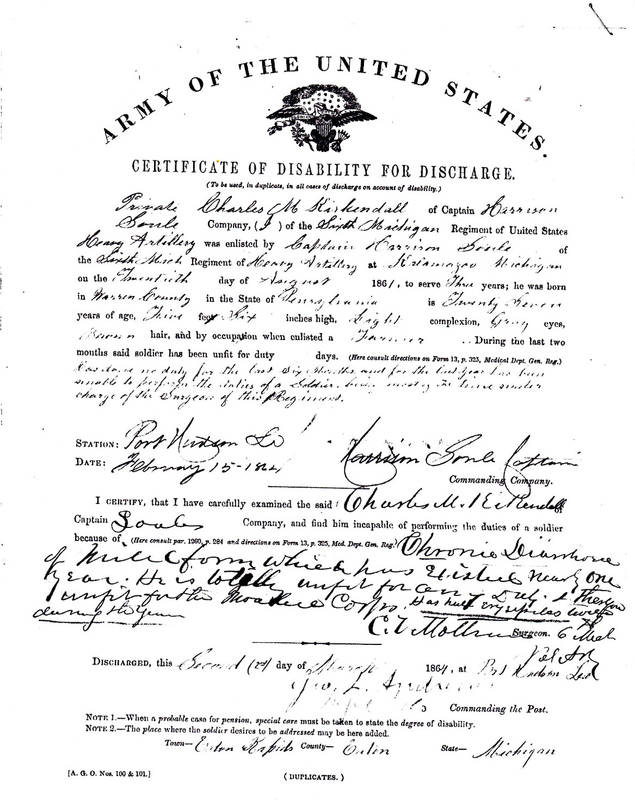 ARMY OF THE UNITED STATES.
CERTIFICATE OF DISABILITY FOR DISCHARGE.
(To be used, in duplicate, in all cases of discharge on account of disability.)
Private Charles M Kirkendall of Captain Harrison
Soule Company, (I) of the Sixth Michigan Regiment of United States
Heavy Artillery was enlisted by Captain Harrison Soule of
the Sixth Mich Regiment of Heavy Artillery at Kalamazoo Michigan
on the Twentieth day of August 1861, to serve Three years; he was born
in Warren County in the State of Pensylvania is Twenty Seven
years of age, Five feet Six inches high, Light complexion, Gray eyes,
Brown hair, and by occupation when enlisted a Farmer During the last two
months said soldier has been unfit for duty days. (Here consult directions on Form 13, p. 325, Medical Dept. Gen. Reg.)
Has done no duty for the last Six Months and for the last Year has been
unable to perform the duties of a Soldier being mostly the time under
charge of the Surgeon of this Regiment.
STATION: Port Hudson La
DATE: February 15 - 1864 Harrison Soule Captain
Commanding Company.
I CERTIFY, that I have carefully examined the said Charles M. Kirkendall
Captain Soules Company, and find him incapable of performing the duties of a soldier
because of (Here consult par. 1260, p. 284 and directions on Form 13, p. 325, Med. Dept. Gen. Reg.) Chronic Diarrhoea
of mild form which has existed nearly one
year. He is totally unfit for any Duty &
unfit for the Corps. Has had erysipelas twice
during the year
Surgeon 6 Mich
DISCHARGED, this Second (2d) day of March 1864, at Port Hudson
Geo. L. Andrews
Commanding the Post.
NOTE 1.—When a probable case for pension, special care must be taken to state the degree of disability.
NOTE 2.—The place where the soldier desires to be addressed may be here added.
Town— Eaton Rapids County— Eaton State— Michigan
[A. G. O. Nos. 100 & 101.] (DUPLICATES.)